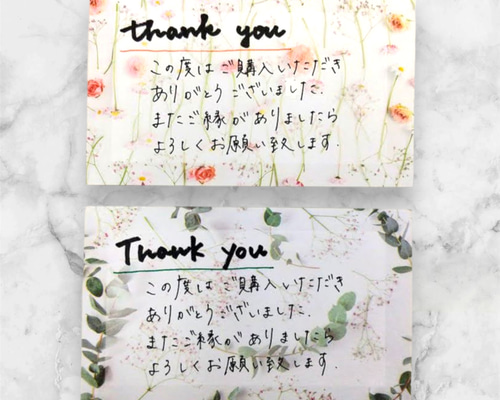 thank you
この度はご購入いただき
ありがとうございました.
またご縁がありましたら
よろしくお願い致します.
Thank you
この度はご購入いただき
ありがとうございました.
またご縁がありましたら
よろしくお願い致します.